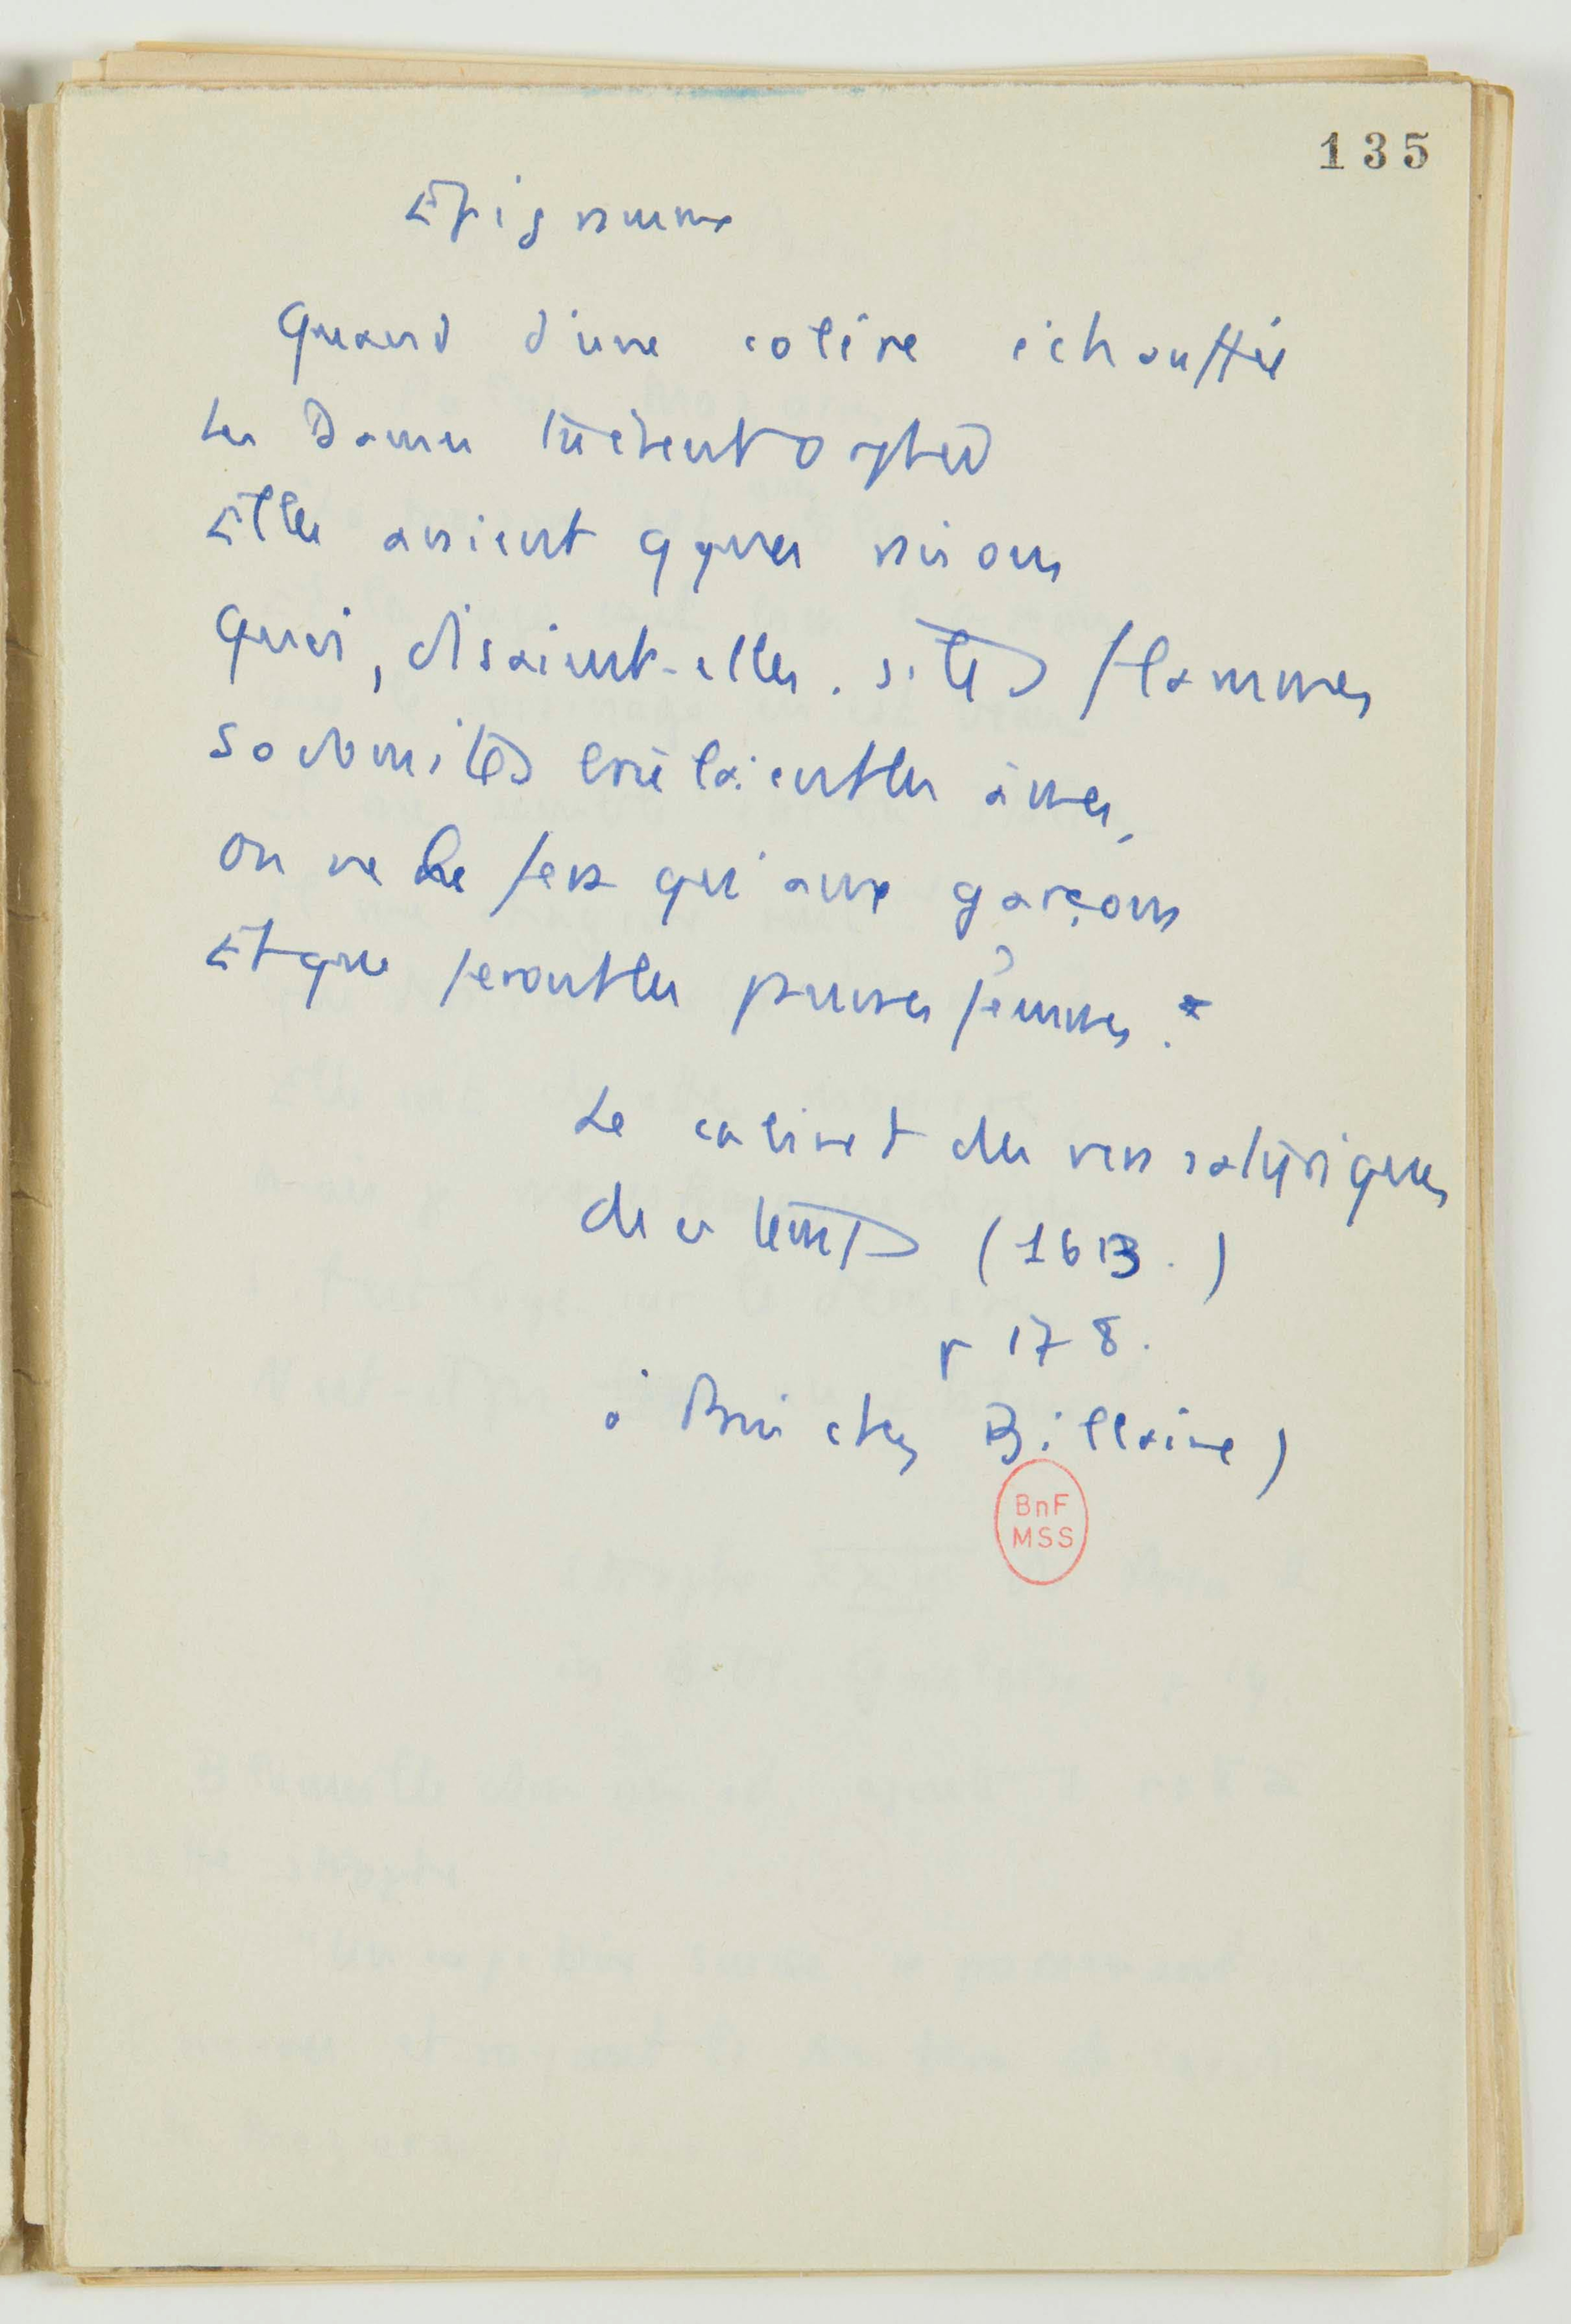 135
Epigramme
Quand d'une colère échauffée
Les Dames tuèrent Orphée
Elles avaient qques raisons
Quoi, disaient-elles, si tes flammes
Sodomites brûlaient les âmes,
On ne le fera qu'aux garçons
Et que feront les pauvres femmes ?
Le cabinet des vers satyriques
de ce temps (1613.)
p 178.
à Paris chez Billaine)
BnF
MSS